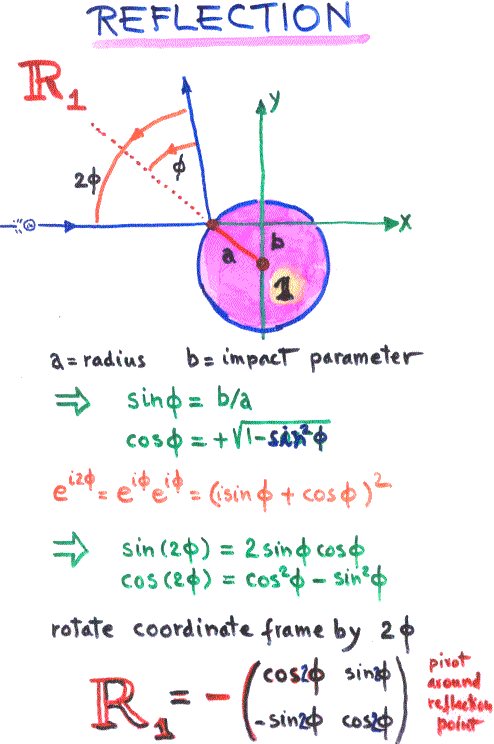 REFLECTION
R1
y
2ϕ
ϕ
x
b
a
1
a = radius b = impact parameter
⇒ sinϕ = b/a
cosϕ = +√1-sin²ϕ
e^i2ϕ = e^iϕ e^iϕ = (isinϕ + cosϕ)²
⇒ sin(2ϕ) = 2sinϕcosϕ
cos(2ϕ) = cos²ϕ - sin²ϕ
rotate coordinate frame by 2ϕ
R1 = - (cos2ϕ sin2ϕ
-sin2ϕ cos2ϕ)
pivot
around
reflection
point